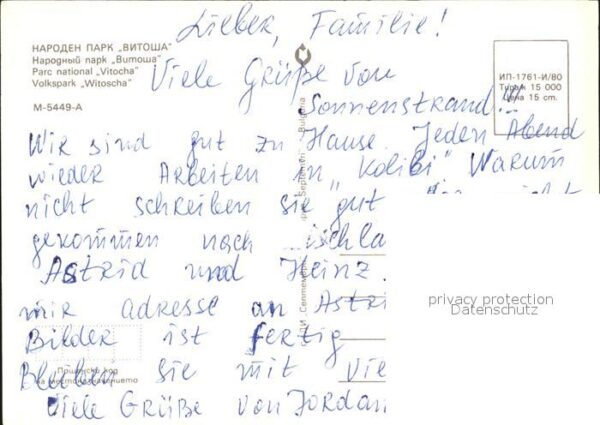 Lieber, Familie!
НАРОДЕН ПАРК „ВИТОША“
Народный парк „Витоша“
Parc national „Vitocha“
Volkspark „Witoscha“
М-5449-А
ИП-1761-И/80
Тираж 15 000
Цена 15 cm.
Viele Grüße von
Sonnenstrand!!!
Wir sind gut zu Hause. Jeden Abend
wieder Arbeiten in „Kolibi“ Warum
nicht schreiben sie gut
gekommen nach
Astrid und Heinz.
mir adresse an Astri
Bilder ist fertig
Bleiben Sie mit Vie
Viele Grüße von Jordan
Пощенски код
на местоназначението
Bulgaria
privacy protection
Datenschutz